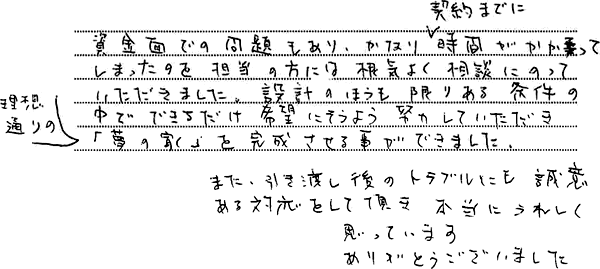 契約までに
資金面での問題もあり、かなり時間がかかって
しまったのを担当の方には根気よく相談にのって
いただきました。設計のほうも限りある条件の
中でできるだけ希望にそうよう努力していただき
理想
通りの
「夢の家」を完成させる事ができました。
また、引き渡し後のトラブルにも誠意
ある対応をして頂き本当にうれしく
思っています
ありがとうございました